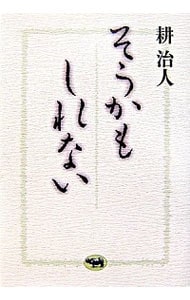 耕 治人
そうかも
しれない